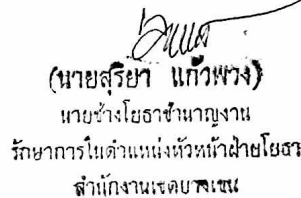 (นายสุริยา แก้วพวง)
นายช่างโยธาชำนาญงาน
รักษาการในตำแหน่งหัวหน้าฝ่ายโยธา
สำนักงานเขตบางเขน